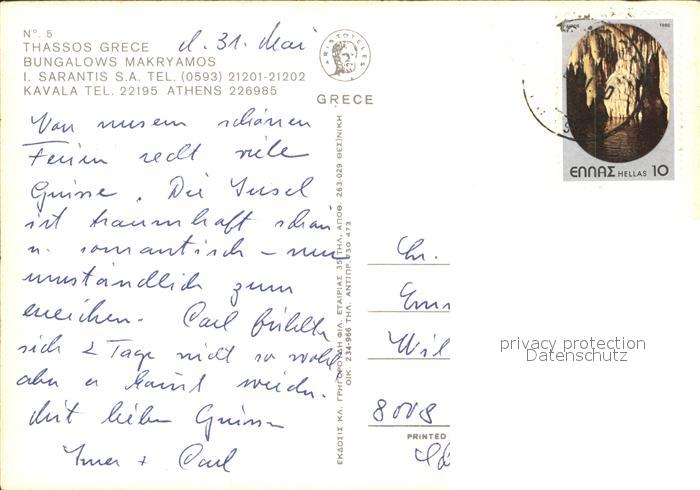 N°. 5
THASSOS GRECE
d. 31. Mai
BUNGALOWS MAKRYAMOS
I. SARANTIS S.A. TEL. (0593) 21201-21202
KAVALA TEL. 22195 ATHENS 226985
ARISTOTELES
GRECE
1980
ΕΛΛΑΣ HELLAS 10
Von unsern schönen
Ferien recht viele
Grüsse. Die Insel
ist traumhaft schön
u. romantisch – nur
umständlich zum
erreichen. Carl fühlte
sich 2 Tage nicht so wohl
aber es kommt wieder.
Mit lieben Grüssen
+ Carl
ΕΚΔΟΣΙΣ ΚΛ. ΓΡΗΓΟΡΟΥΔΗ ΦΙΛ. ΕΤΑΙΡΙΑΣ 35 ΤΗΛ. ΑΠΟΘ. 263.029 ΘΕΣ/ΝΙΚΗ
ΟΙΚ. 234-966 ΤΗΛ. ΑΝΤΙΠΡ. 730 473
Wil
8008
PRINTED
privacy protection
Datenschutz